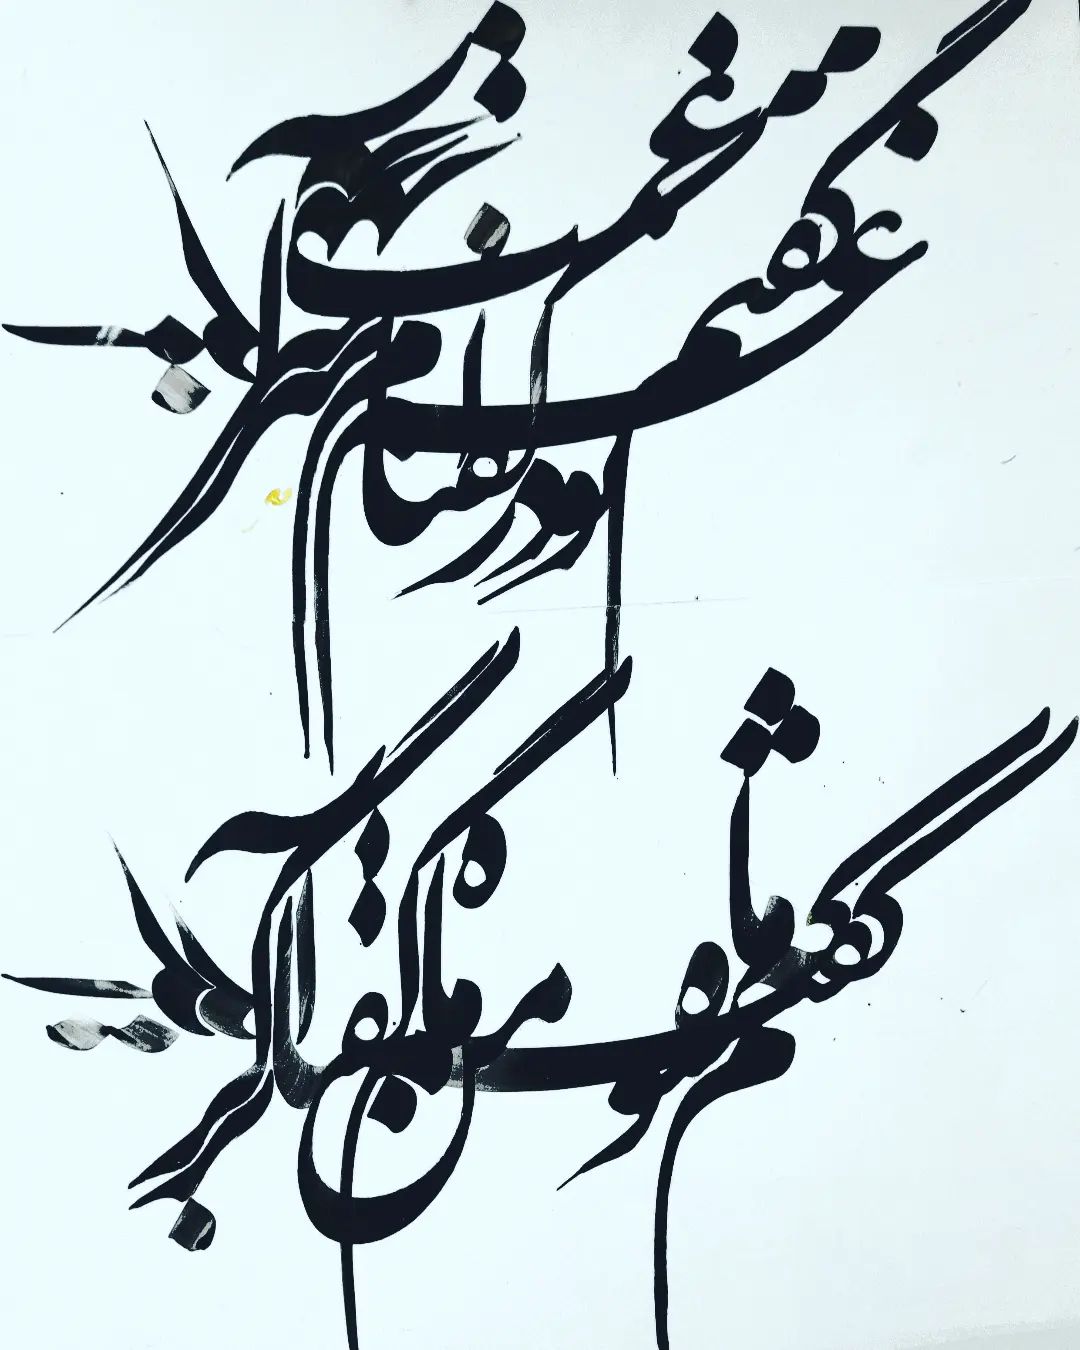 گفتم غم تو دارم گفتا غمت سر آید
گفتم که ماه من شو گفتا اگر برآید